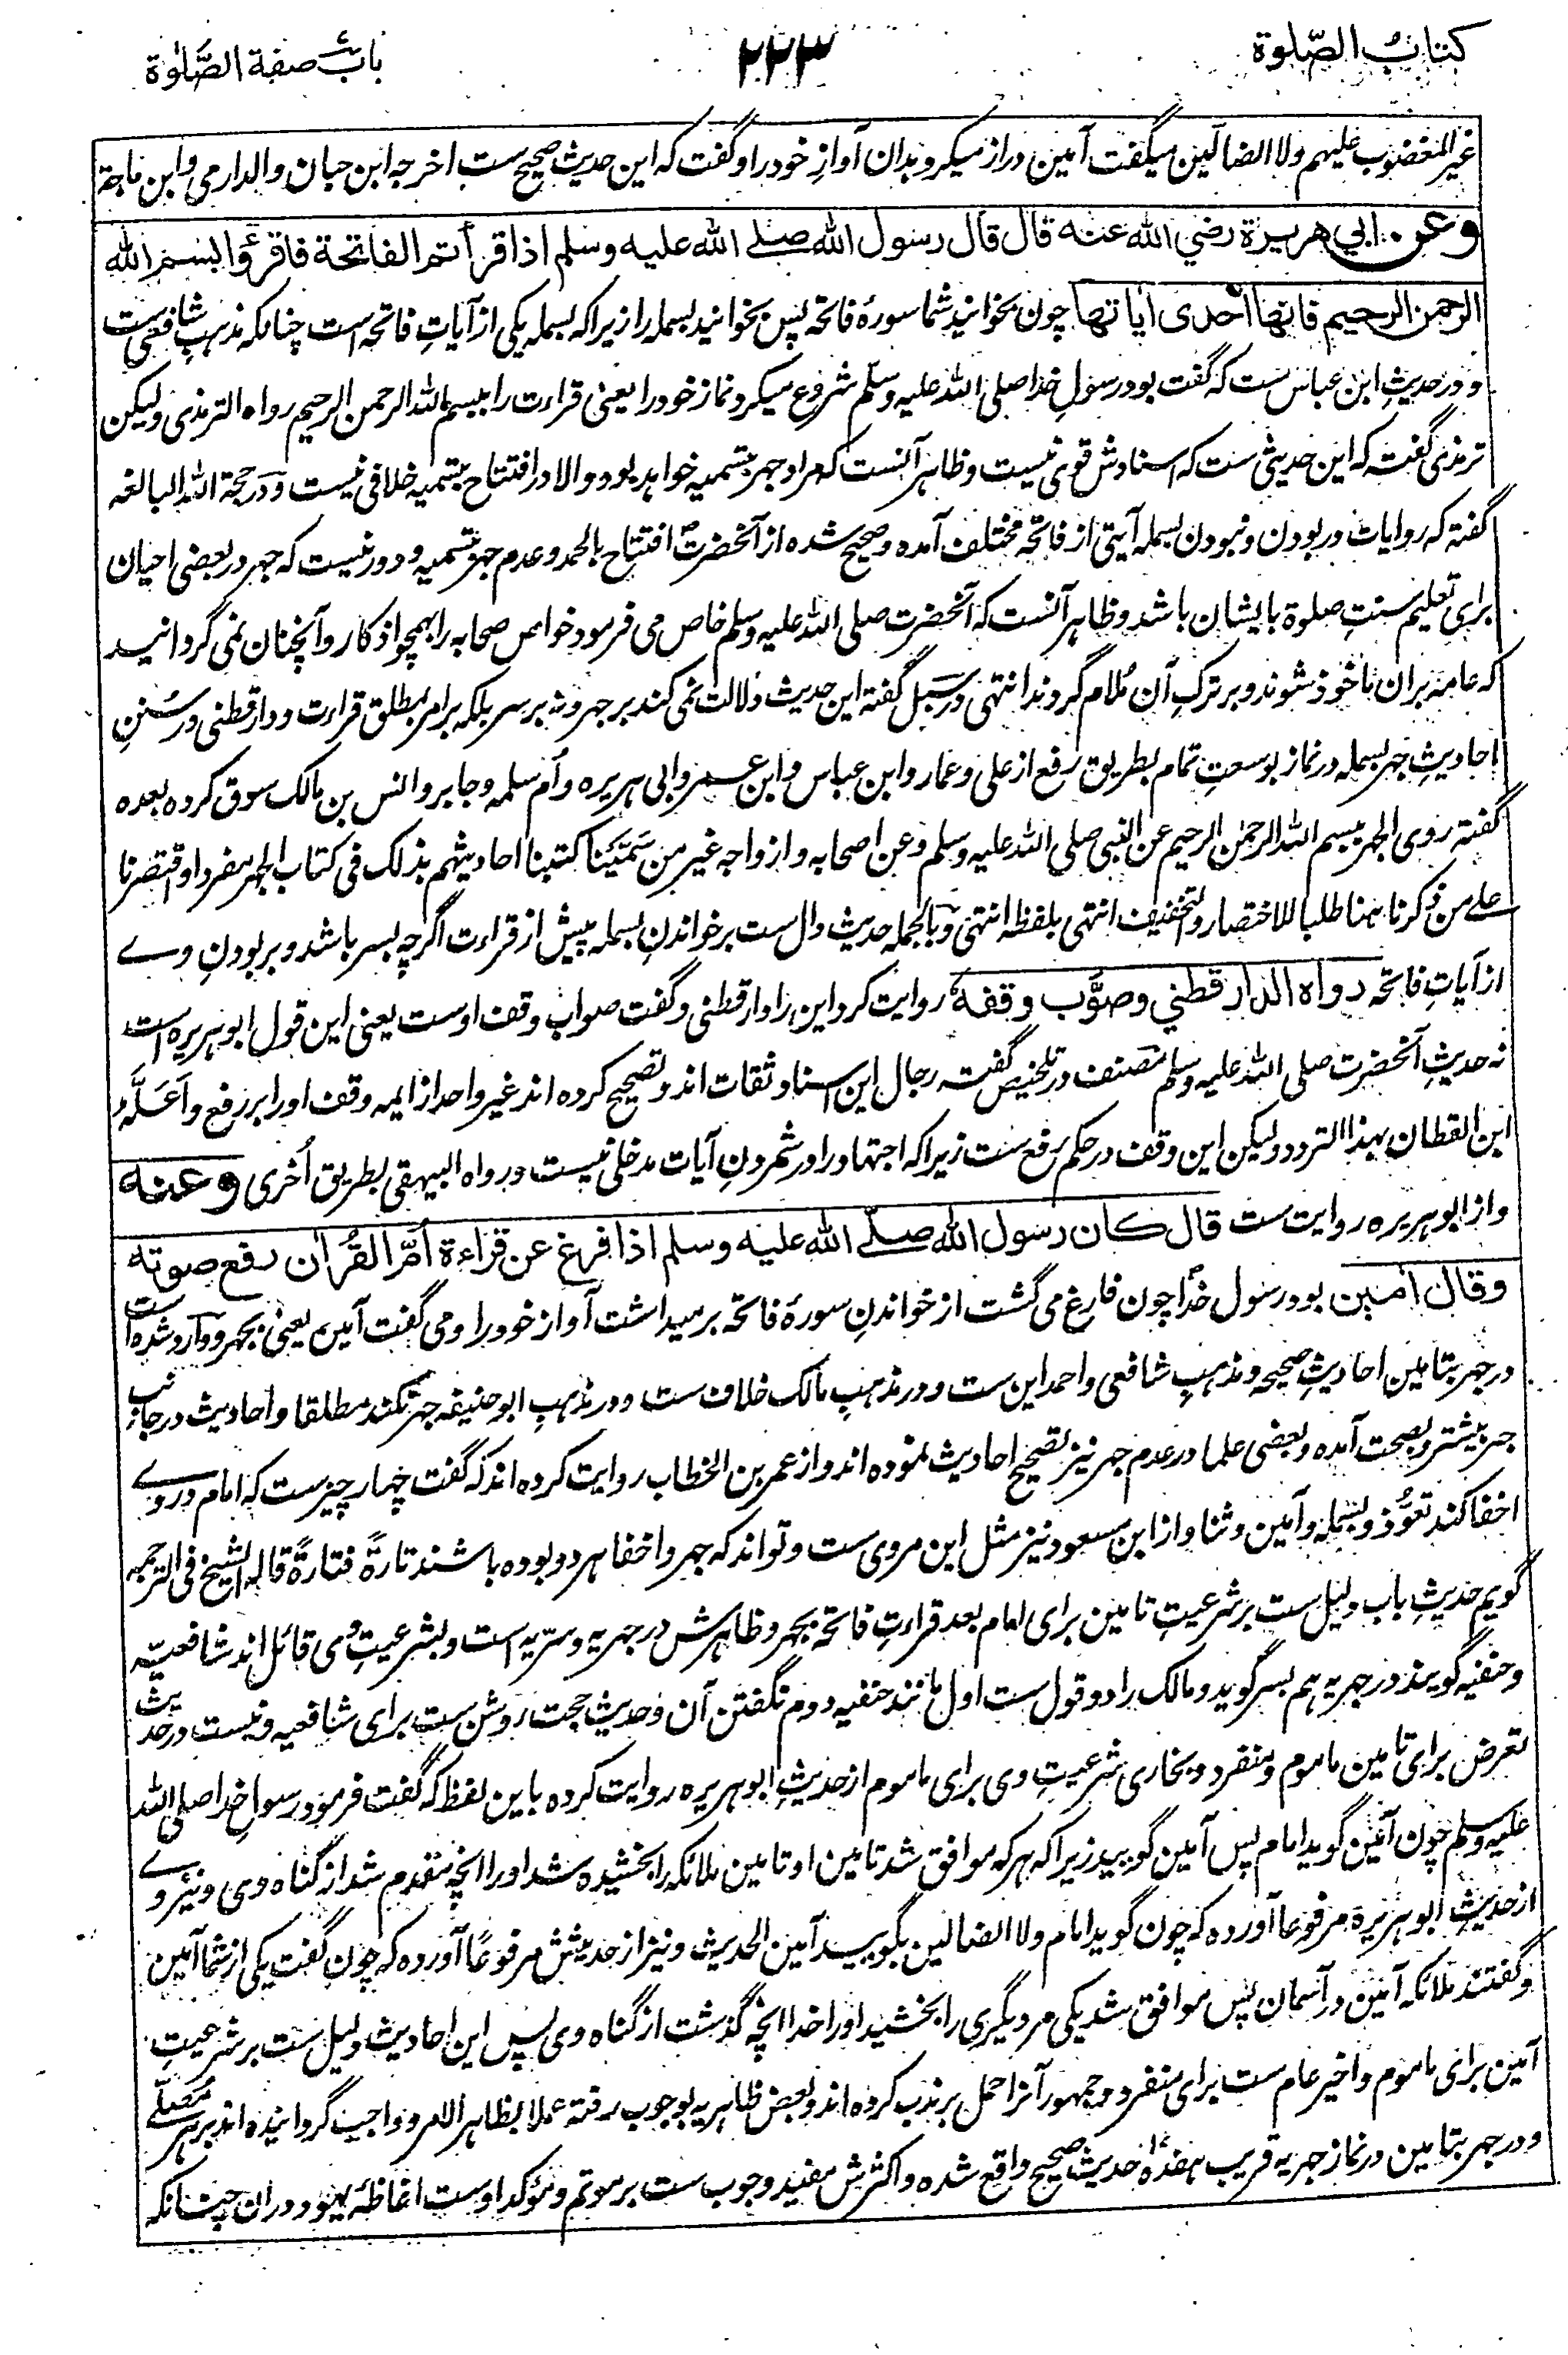 کتابُ الصّلوة
۲۲۳
بابُ صفة الصَّلوٰة
غیر المغضوب علیهم ولا الضالین میگفت آمین دراز میکرد بدان آوازِ خود را و گفت که این حدیث صحیح ست اخرجه ابن حبان والدارمی وابن ماجة
وعن ابي هريرة رضي الله عنه قال قال رسول الله صلے الله عليه وسلم اذا قرأتم الفاتحة فاقرؤا بسم الله
الرحمن الرحيم فانها احدى اياتها چون بخوانید شما سورۂ فاتحه پس بخوانید بسمله را زیرا که بسمله یکی از آیاتِ فاتحه است چنانکه مذهبِ شافعی ست
و در حدیثِ ابن عباس ست که گفت بود رسولِ خدا صلی الله علیه وسلم شروع میکرد نماز خود را یعنی قراءت را ببسم الله الرحمن الرحیم رواه الترمذی ولیکن
ترمذی گفته که این حدیثی ست که اسنادش قوی نیست و ظاهر آنست که مراد جهر بتسمیه خواهد بود والا در افتتاح بتسمیه خلافی نیست و در حجة الله البالغه
گفته که روایات در بودن و نبودن بسمله آیتی از فاتحه مختلف آمده و صحیح شده از آنحضرتؐ افتتاح بالحمد و عدم جهر بتسمیه و دور نیست که جهر در بعضی احیان
برای تعلیم سنتِ صلوة بایشان باشد و ظاهر آنست که آنحضرت صلی الله علیه وسلم خاص می فرمود خواص صحابه را بهمچو اذکار و آنچنان نمی گردانید
که عامه بران ماخوذ شوند و بر ترکِ آن مُلام گردند انتهی در سبل گفته این حدیث دلالت نمی کند بر جهر و نه بر سر بلکه بر امر بمطلق قراءت و دارقطنی در سُننِ
احادیثِ جهر بسمله در نماز بوسعتِ تمام بطریق رفع از علی و عمار و ابن عباس و ابن عمر و ابی هریره و اُم سلمه و جابر و انس بن مالک سوق کرده بعده
گفته روی الجهر ببسم الله الرحمٰن الرحیم عن النبی صلی الله علیه وسلم وعن اصحابه وازواجه غیر من سَمَّیْنَا کتبنا احادیثهم بذلک فی کتاب الجهر مفردا واقتصرنا
علے من ذکرنا هنا طلبا للاختصار والتخفیف انتهی بلفظه انتهی و بالجمله حدیث دال ست بر خواندنِ بسمله پیش از قراءت اگرچه بسر باشد و بر بودنِ وے
از آیاتِ فاتحه رواه الدارقطني وصوَّب وقفه روایت کرد این را دارقطنی و گفت صواب وقف اوست یعنی این قول ابوهریره است
نه حدیثِ آنحضرت صلی الله علیه وسلم مصنف در تلخیص گفته رجال این اسناد ثقات اند و تصحیح کرده اند غیر واحد از ایمه وقف او را بر رفع وَاَعَلَّهُ
ابن القطان بهذا التردد ولیکن این وقف در حکم رفع ست زیرا که اجتهاد را در شمردنِ آیات مدخلی نیست و رواه البیهقی بطریق اُخری وعنه
و از ابوهریره روایت ست قال كان رسول الله صلّے الله عليه وسلم اذا فرغ عن قراءة اُمّ القُرْان رفع صوته
وقال امين بود رسول خداؐ چون فارغ می گشت از خواندنِ سورۂ فاتحه بر میداشت آواز خود را و می گفت آمین یعنی بجهر و وارد شده است
در جهر بتامین احادیثِ صحیحه و مذهبِ شافعی و احمد این ست و در مذهبِ مالک خلاف ست و در مذهبِ ابوحنیفه جهر نکند مطلقا و احادیث در جانبِ
جهر بیشتر و بصحت آمده و بعضی علما در عدم جهر نیز تصحیح احادیث نموده اند و از عمر بن الخطاب روایت کرده اند که گفت چهار چیز ست که امام در وے
اخفا کند تعوُّذ و بسمله و آمین و ثنا و از ابن مسعود نیز مثل این مروی ست و تواند که جهر و اخفا هر دو بوده باشند تارةً فتارةً قاله الشیخ فی الترجمه
گویم حدیثِ باب دلیل ست بر شرعیتِ تامین برای امام بعد قراءتِ فاتحه بجهر و ظاهرش در جهریه و سریه است و بشرعیتِ وی قائل اند شافعیّه
و حنفیه گویند در جهریه هم بسر گوید و مالک را دو قول ست اول مانند حنفیه دوم نگفتن آن و حدیث حجت روشن ست برای شافعیه و نیست در حدیث
تعرض برای تامین ماموم و منفرد و بخاری شرعیتِ وی برای ماموم از حدیثِ ابوهریره روایت کرده باین لفظ که گفت فرمود رسولِ خدا صلی الله
علیه وسلم چون آمین گوید امام پس آمین گویید زیرا که هر که موافق شد تامین او تامین ملائکه را بخشیده شد او را آنچه متقدم شد از گناه وی و نیز وے
از حدیثِ ابوهریرة مرفوعا آورده که چون گوید امام ولا الضالین بگویید آمین الحدیث و نیز از حدیثش مرفوعاً آورده که چون گفت یکی از شما آمین
و گفتند ملائکه آمین در آسمان پس موافق شد یکی مر دیگری را بخشید او را خدا آنچه گذشت از گناه وی پس این احادیث دلیل ست بر شرعیتِ
آمین برای ماموم و اخیر عام ست برای منفرد و جمهور آنرا حمل بر ندب کرده اند و بعض ظاهریه بوجوب رفته عملا بظاهر الامر و واجب گردانیده اند بر هر مُصلّے
و در جهر بتامین در نماز جهریه قریب هفده حدیث صحیح واقع شده و اکثرش مفید وجوب ست بر موتم و مؤکد اوست اغاظۀ یهود دران چنانکه